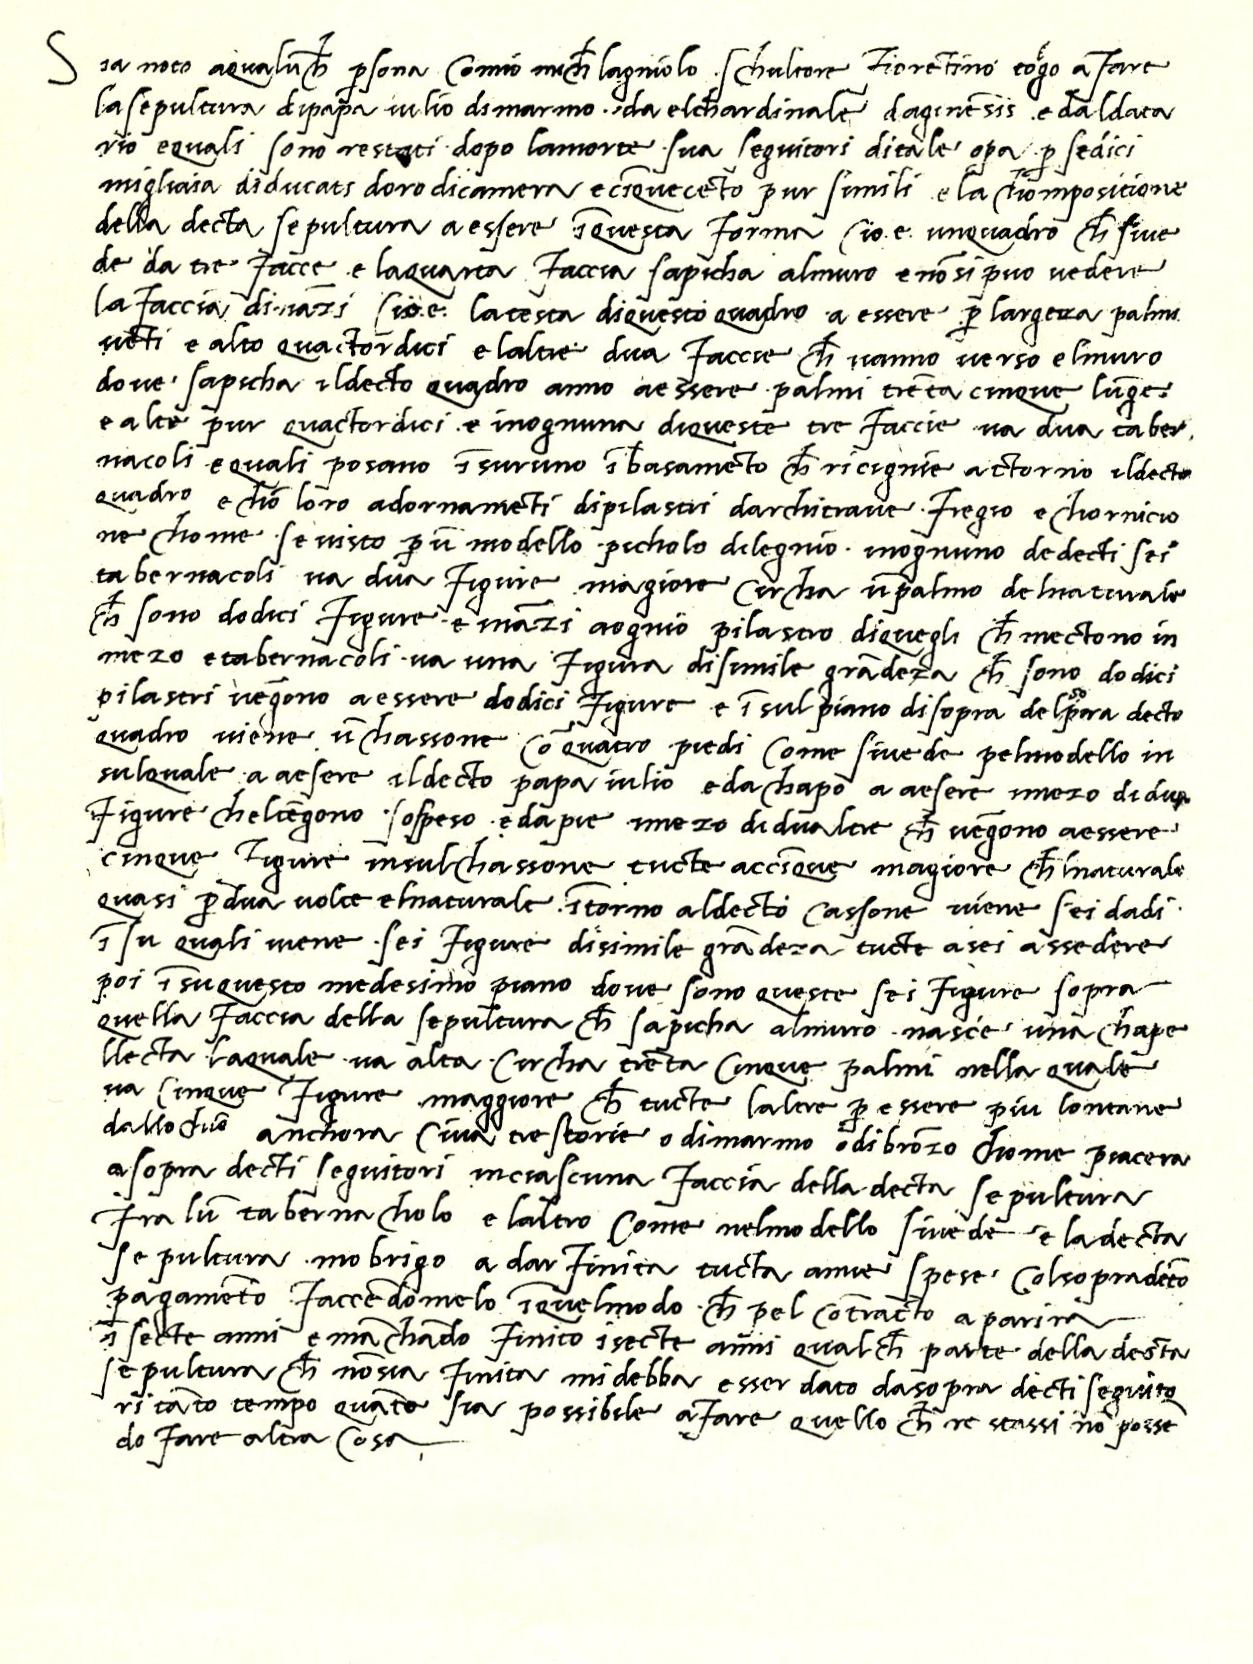 Sia noto a qualu̅ch̅ p̱sona com̅o mich̅lagniolo schultore Fiorentino togo a Fare
la sepultura di papa iulio di marmo da el chardinale daginensis e dal data
rio e quali sono restati dopo la morte sua seguitori di tale op̱a p̱ sedici
migliaia di ducati doro di camera e ciq̅uece̅to pur simili e la chompositione
della decta sepultura a essere i̅ questa Forma cioe un quadro ch̅ si ve
de da tre Facce e la quarta Faccia sapicha al muro e no̅ si puo vedere
la Faccia dina̅zi cioe la testa di questo quadro a essere p̱ largeza palmi
ve̅ti e alto quactordici e laltre dua Faccie ch̅ vanno verso el muro
dove sapicha il decto quadro anno a essere palmi tre̅ta cinque lu̅ge
e alte pur quactordici e in ognuna di queste tre Faccie va dua taber
nacoli e quali posano i̅ sur uno i̅basame̅to ch̅ ricignie actorno il decto
quadro e cho̅ loro adorname̅ti di pilastri darchitrave Fregio e chornicio
ne chome se visto p̱ u̅ modello picholo di legnio in ognuno de decti sei
tabernacoli va dua Figure magiore circha u̅ palmo del naturale
ch̅ sono dodici Figure e ina̅zi a ognio pilastro di quegli ch̅ mectono in
mezo e tabernacoli va una Figura di simile gra̅deza ch̅ sono dodici
pilastri ve̅gono a essere dodici Figure e i̅ sul piano di sopra del sopra decto
quadro viene u̅ chassone co̅ quatro piedi come si vede pel modello in
sul quale a aesere il decto papa iulio e da chapo a aesere mezo di dua
Figure che l te̅gono sospeso e da pie mezo di dualtre ch̅ ve̅gono a essere
cinque Figure in sul chassone tucte acci̅que magiore ch̅ l naturale
quasi p̱ dua volte el naturale i̅torno al decto cassone viene sei dadi
i̅ su quali viene sei Figure di simile gra̅deza tucte a sei a ssedere
poi i̅ su questo medesimo piano dove sono queste sei Figure sopra
quella Faccia della sepultura ch̅ sapicha al muro nasce una chape
llecta la quale va alta circha tre̅ta cinque palmi nella quale
va cinque Figure maggiore ch̅ tucte laltre p̱ essere piu lontane
dallochio anchora ci va tre storie o di marmo o di bro̅zo chome piacera
a sopra decti seguitori in ciascuna Faccia della decta sepultura
Fra lu̅ tabernacholo e laltro come nel modello si vede e la decta
sepultura mobrigo a dar Finita tucta a mie spese col sopra decto
pagame̅to Facce̅domelo i̅ quel modo ch̅ pel co̅tracto aparira
i̅ secte anni e ma̅cha̅do Finito i secte anni qualch̅ parte della decta
sepultura ch̅ no̅ sia Finita mi debba esser dato da sopra decti seguito
ri ta̅to tempo qua̅to sia possibile a Fare quello ch̅ restassi no̅ posse̅
do Fare altra cosa